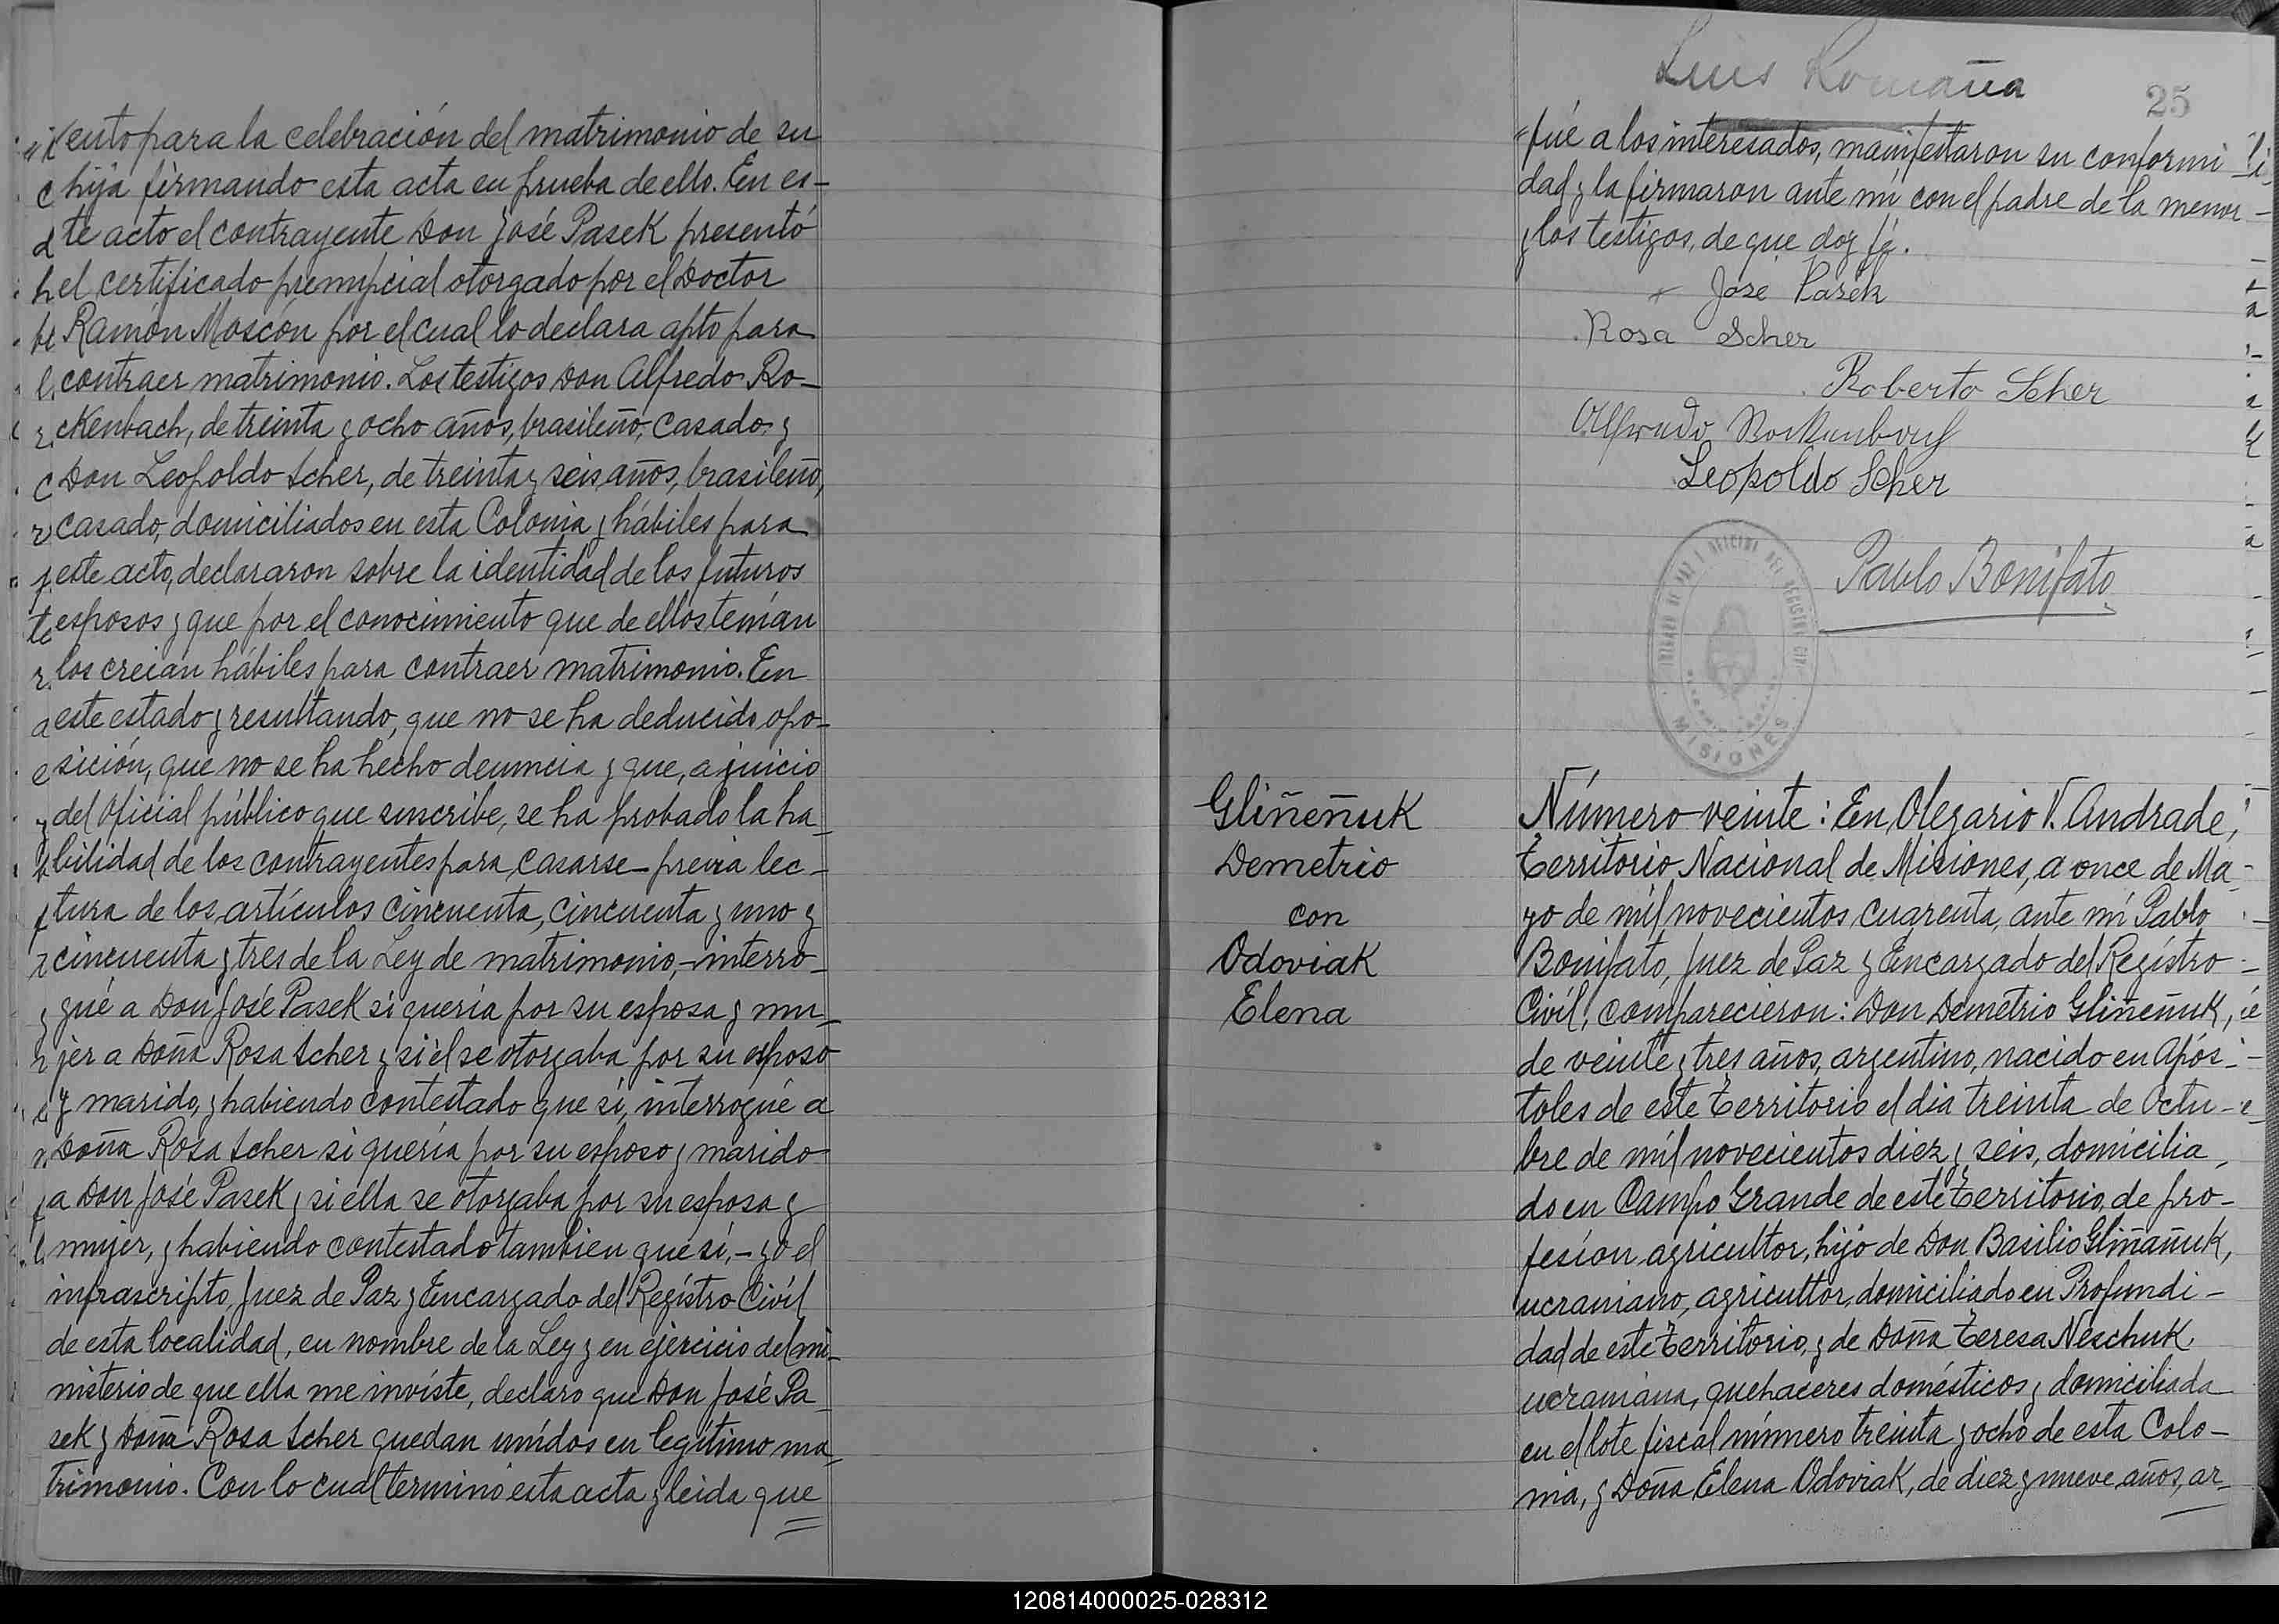 "ento para la celebración del matrimonio de su
hija firmando esta acta en prueba de ello. En es-
te acto el contrayente Don José Pasek presentó
el certificado prenupcial otorgado por el Doctor
Ramón Moscón por el cual lo declara apto para
contraer matrimonio. Los testigos Don Alfredo Ro-
ckenbach, de treinta y ocho años, brasileño, casado y
Don Leopoldo Scher, de treinta y seis años, brasileño,
casado, domiciliados en esta Colonia y hábiles para
este acto, declararon sobre la identidad de los futuros
esposos y que por el conocimiento que de ellos tenían
los creian hábiles para contraer matrimonio. En
este estado y resultando, que no se ha deducido opo-
sición, que no se ha hecho denuncia y que, a juicio
del Oficial público que suscribe, se ha probado la ha-
bilidad de los contrayentes para casarse - previa lec-
tura de los artículos cincuenta, cincuenta y uno y
cincuenta y tres de la Ley de matrimonio, - interro-
gué a Don José Pasek si quería por su esposa y mu-
jer a Doña Rosa Scher y si él se otorgaba por su esposo
y marido, y habiendo contestado que sí, interrogué a
Doña Rosa Scher si quería por su esposo y marido
a Don José Pasek y si ella se otorgaba por su esposa y
mujer, y habiendo contestado tambien que sí, - yo el
infrascripto, Juez de Paz y Encargado del Regístro Civíl
de esta localidad, en nombre de la Ley y en ejercicio del mi-
nisterio de que ella me invíste, declaro que Don José Pa-
sek y Doña Rosa Scher quedan unídos en legítimo ma-
trimonio. Con lo cual terminó esta acta y leida que
Luis Romaña
25
"fué a los interesados, manifestaron su conformi
dad y la firmaron ante mí con el padre de la menor
y los testigos, de que doy fé.
José Pasek
Rosa Scher
Roberto Scher
Alfredo Rockenbach
Leopoldo Scher
JUZGADO DE PAZ Y OFICINA DEL REGISTRO CIVIL
MISIONES
Pablo Bonifato
Gliñeñuk
Demetrio
con
Odoviak
Elena
Número veinte: En Olegario V. Andrade,
Territorio Nacional de Misiones, a once de Ma-
yo de míl novecientos cuarenta, ante mí Pablo
Bonifato, Juez de Paz y Encargado del Regístro
Civíl, comparecieron: Don Demetrio Gliñeñuk,
de veinte y tres años, argentino, nacido en Após-
toles de este Territorio el dia treinta de Octu-
bre de míl novecientos diez y seis, domicilia-
do en Campo Grande de este Territorio, de pro-
fesíon agricultor, hijo de Don Basilio Gliñañuk,
ucraniano, agricultor, domiciliado en Profundi-
dad de este Territorio, y de Doña Teresa Neschuk
ucraniana, quehaceres domésticos y domiciliada
en el lote fiscal número treinta y ocho de esta Colo-
nia, y Doña Elena Odoviak, de diez y nueve años, ar-
120814000025-028312